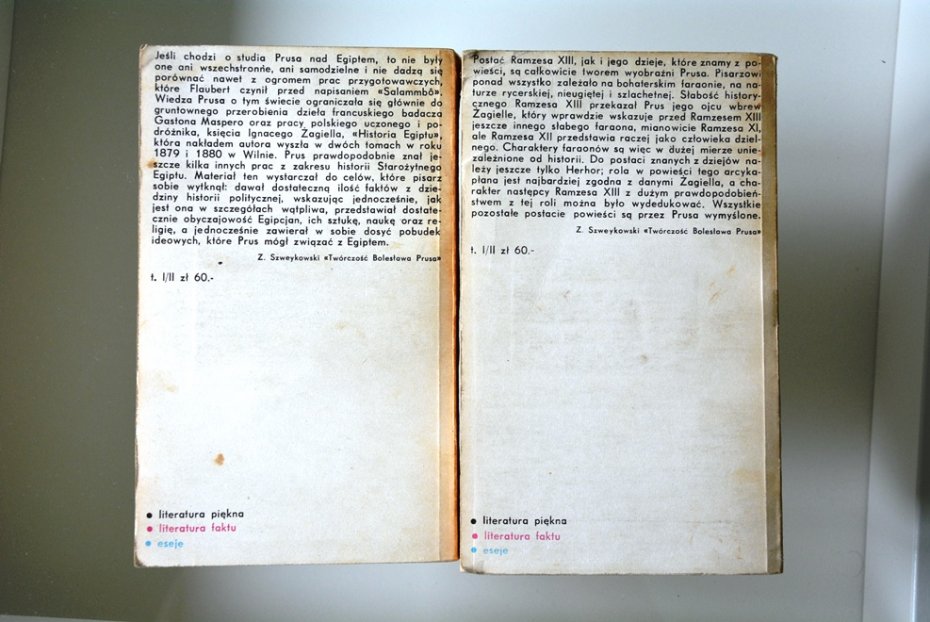 Jeśli chodzi o studia Prusa nad Egiptem, to nie były
one ani wszechstronne, ani samodzielne i nie dadzą się
porównać nawet z ogromem prac przygotowawczych,
które Flaubert czynił przed napisaniem «Salammbô».
Wiedza Prusa o tym świecie ograniczała się głównie do
gruntownego przerobienia dzieła francuskiego badacza
Gastona Maspero oraz pracy polskiego uczonego i po-
dróżnika, księcia Ignacego Żagiella, «Historia Egiptu»,
która nakładem autora wyszła w dwóch tomach w roku
1879 i 1880 w Wilnie. Prus prawdopodobnie znał je-
szcze kilka innych prac z zakresu historii Starożytnego
Egiptu. Materiał ten wystarczał do celów, które pisarz
sobie wytknął: dawał dostateczną ilość faktów z dzie-
dziny historii politycznej, wskazując jednocześnie, jak
jest ona w szczegółach wątpliwa, przedstawiał dostate-
cznie obyczajowość Egipcjan, ich sztukę, naukę oraz re-
ligię, a jednocześnie zawierał w sobie dosyć pobudek
ideowych, które Prus mógł związać z Egiptem.
Z. Szweykowski «Twórczość Bolesława Prusa»
t. I/II zł 60.-
• literatura piękna
• literatura faktu
• eseje
Postać Ramzesa XIII, jak i jego dzieje, które znamy z po-
wieści, są całkowicie tworem wyobraźni Prusa. Pisarzowi
ponad wszystko zależało na bohaterskim faraonie, na na-
turze rycerskiej, nieugiętej i szlachetnej. Słabość history-
cznego Ramzesa XIII przekazał Prus jego ojcu wbrew
Żagielle, który wprawdzie wskazuje przed Ramzesem XIII
jeszcze innego słabego faraona, mianowicie Ramzesa XI,
ale Ramzesa XII przedstawia raczej jako człowieka dziel-
nego. Charaktery faraonów są więc w dużej mierze unie-
zależnione od historii. Do postaci znanych z dziejów na-
leży jeszcze tylko Herhor; rola w powieści tego arcyka-
płana jest najbardziej zgodna z danymi Żagiella, a cha-
rakter następcy Ramzesa XIII z dużym prawdopodobień-
stwem z tej roli można było wydedukować. Wszystkie
pozostałe postacie powieści są przez Prusa wymyślone.
Z. Szweykowski «Twórczość Bolesława Prusa»
t. I/II zł 60.-
• literatura piękna
• literatura faktu
• eseje